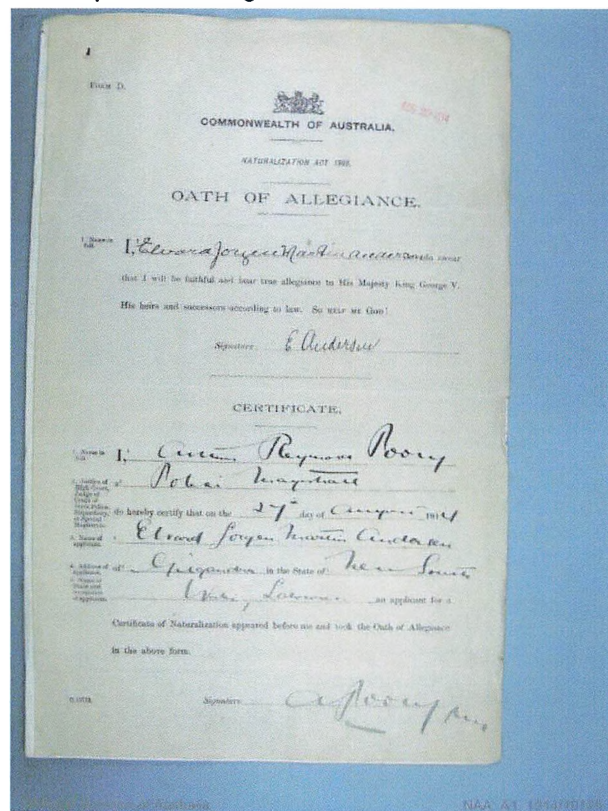 FORM D.
COMMONWEALTH OF AUSTRALIA.
NATURALIZATION ACT 1903.
OATH OF ALLEGIANCE.
1. Name in full.
I, Elvard Jorgen Martin Andersen do swear
that I will be faithful and bear true allegiance to His Majesty King George V.
His heirs and successors according to law. SO HELP ME GOD!
Signature E Andersen
CERTIFICATE.
1. Name in full.
I, Raymond
2. Justice of High Court, Judge of
of Police Magistrate
do hereby certify that on the 27th day of August 1914
3. Name of applicant.
Elvard Jorgen Martin Andersen
4. Address of applicant.
of Gilgandra in the State of New South
Wales, an applicant for a
Certificate of Naturalization appeared before me and took the Oath of Allegiance
in the above form.
Signature
of Australia